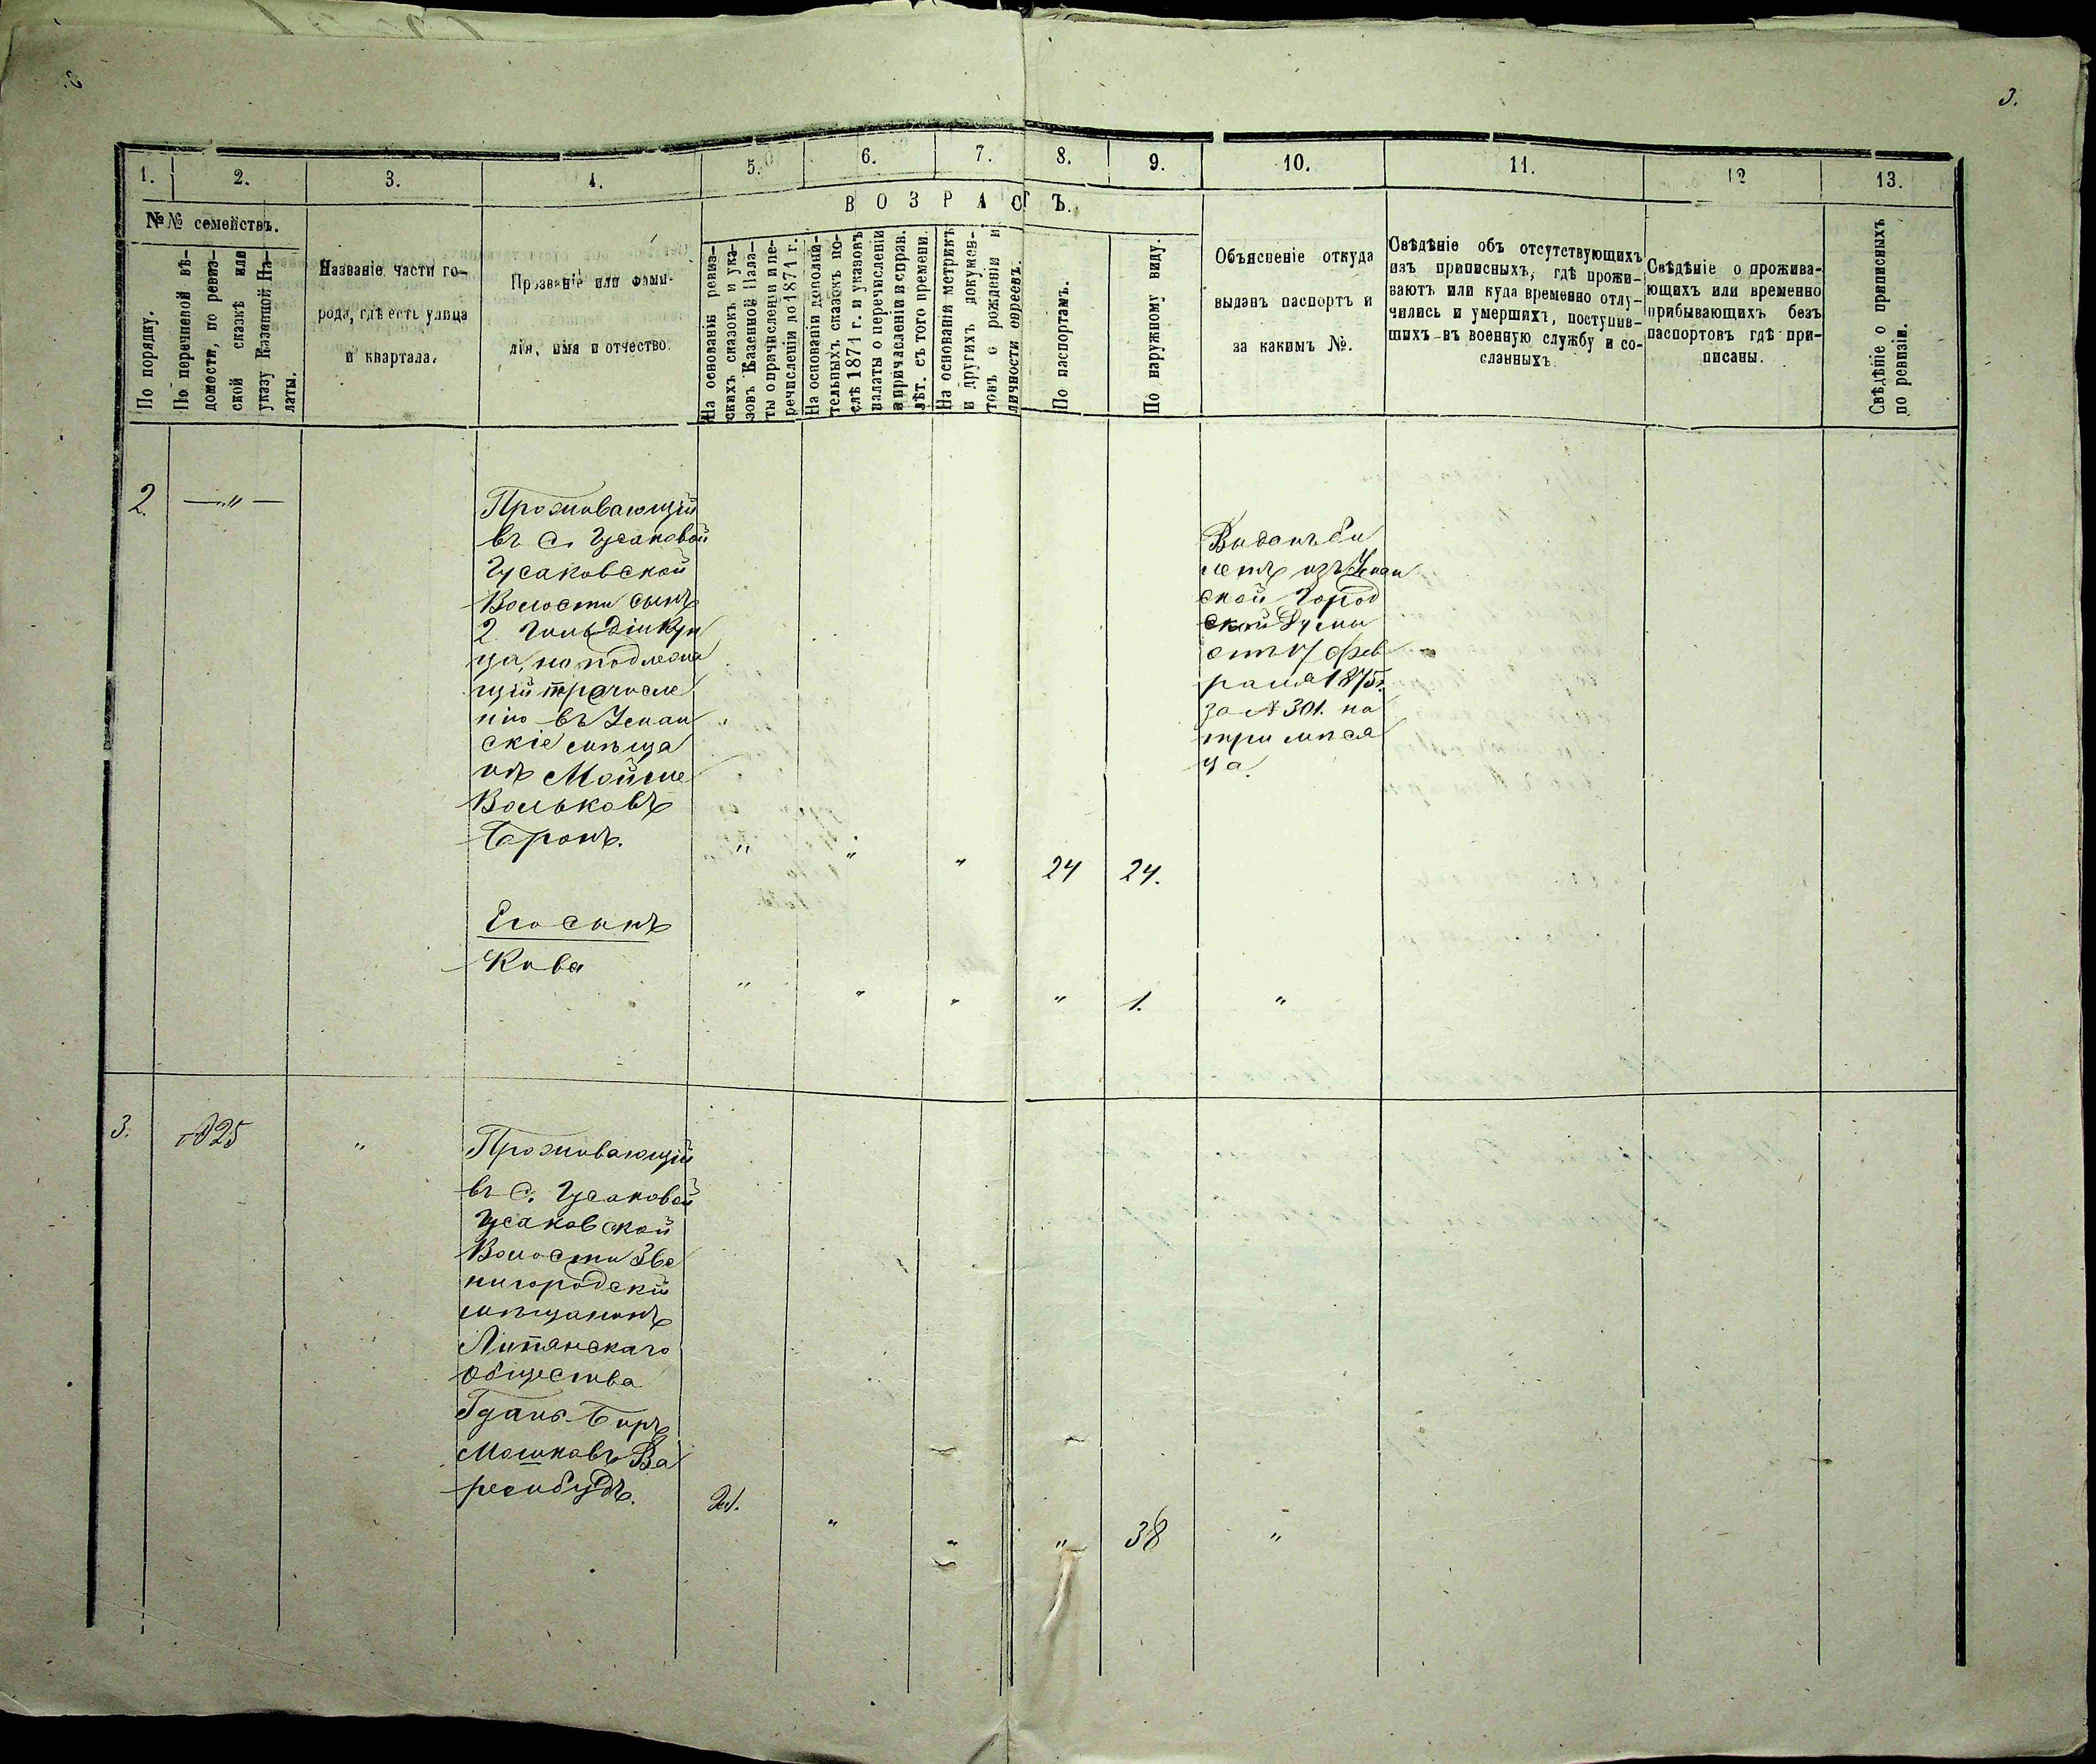 3.
1.
2.
3.
4.
5.
6.
7.
8.
9.
10.
11.
12
13.
№№ семействъ.
По порядку.
По перечневой вѣ-
домости, по ревиз-
ской сказкѣ или
указу Казенной Па-
латы.
Названіе части го-
рода, гдѣ есть улица
и квартала.
Прозваніе или фами-
лія, имя и отчество.
ВОЗРАСТЪ.
На основаніи ревиз-
скихъ сказокъ и ука-
зовъ Казенной Пала-
ты о причисленіи и пе-
речисленіи до 1871 г.
На основаніи дополни-
тельныхъ сказокъ по-
слѣ 1871 г. и указовъ
палаты о перечисленіи
и причисленіи и справ.
лѣт. съ того времени.
На основаніи метрикъ
и другихъ докумен-
товъ о рожденіи и
личности евреевъ.
По паспортамъ.
По наружному виду.
Объясненіе откуда
выданъ паспортъ и
за какимъ №.
Свѣдѣніе объ отсутствующихъ
изъ приписныхъ, гдѣ прожи-
ваютъ или куда временно отлу-
чились и умершихъ, поступив-
шихъ въ военную службу и со-
сланныхъ.
Свѣдѣніе о прожива-
ющихъ или временно
прибывающихъ безъ
паспортовъ гдѣ при-
писаны.
Свѣдѣніе о приписныхъ
по ревизіи.
2.
—"—
Проживающій
въ С. Гусаковой
Гусаковской
Волости сынъ
2. Гильдіи Куп
ца, но подлежа
щій
въ Уман
скіе мѣща
не Мойше
Вольковъ
Баронъ.
" " " 24 24.
Выданъ би
летъ изъ Уман
ской Город
ской Думы
отъ 17 Фев
раля 1875 г.
за № 301. на
три мѣся
ца.
Его сынъ
Кива
" " " " 1. "
3.
№25
"
Проживающій
въ С. Гусаковой
Гусаковской
Волости Зве
нигородскій
мѣщанинъ
Липянскаго
Общества
Беръ
Мошковъ Ва
21.
" " " 38 "